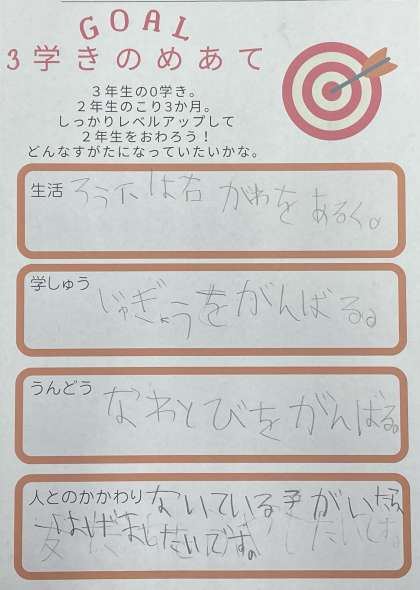 GOAL
3学きのめあて
3年生の0学き。
2年生のこり3か月。
しっかりレベルアップして
2年生をおわろう！
どんなすがたになっていたいかな。
生活 ろう下は右がわをあるく。
学しゅう じゅぎょうをがんばる。
うんどう なわとびをがんばる。
人とのかかわり ないている子がいたら、
はげましたいです。